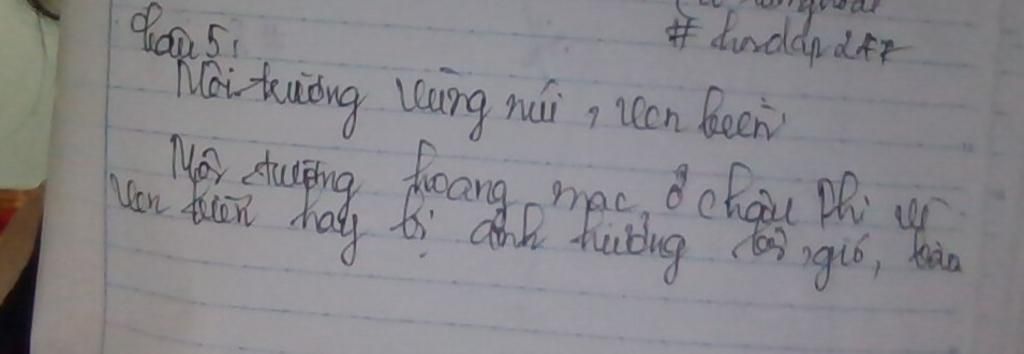 # hoidap247
Câu 5:
Môi trường vùng núi, ven biển
Môi trường hoang mạc ở châu Phi vì
ven biển hay bị ảnh hưởng bởi gió, bão